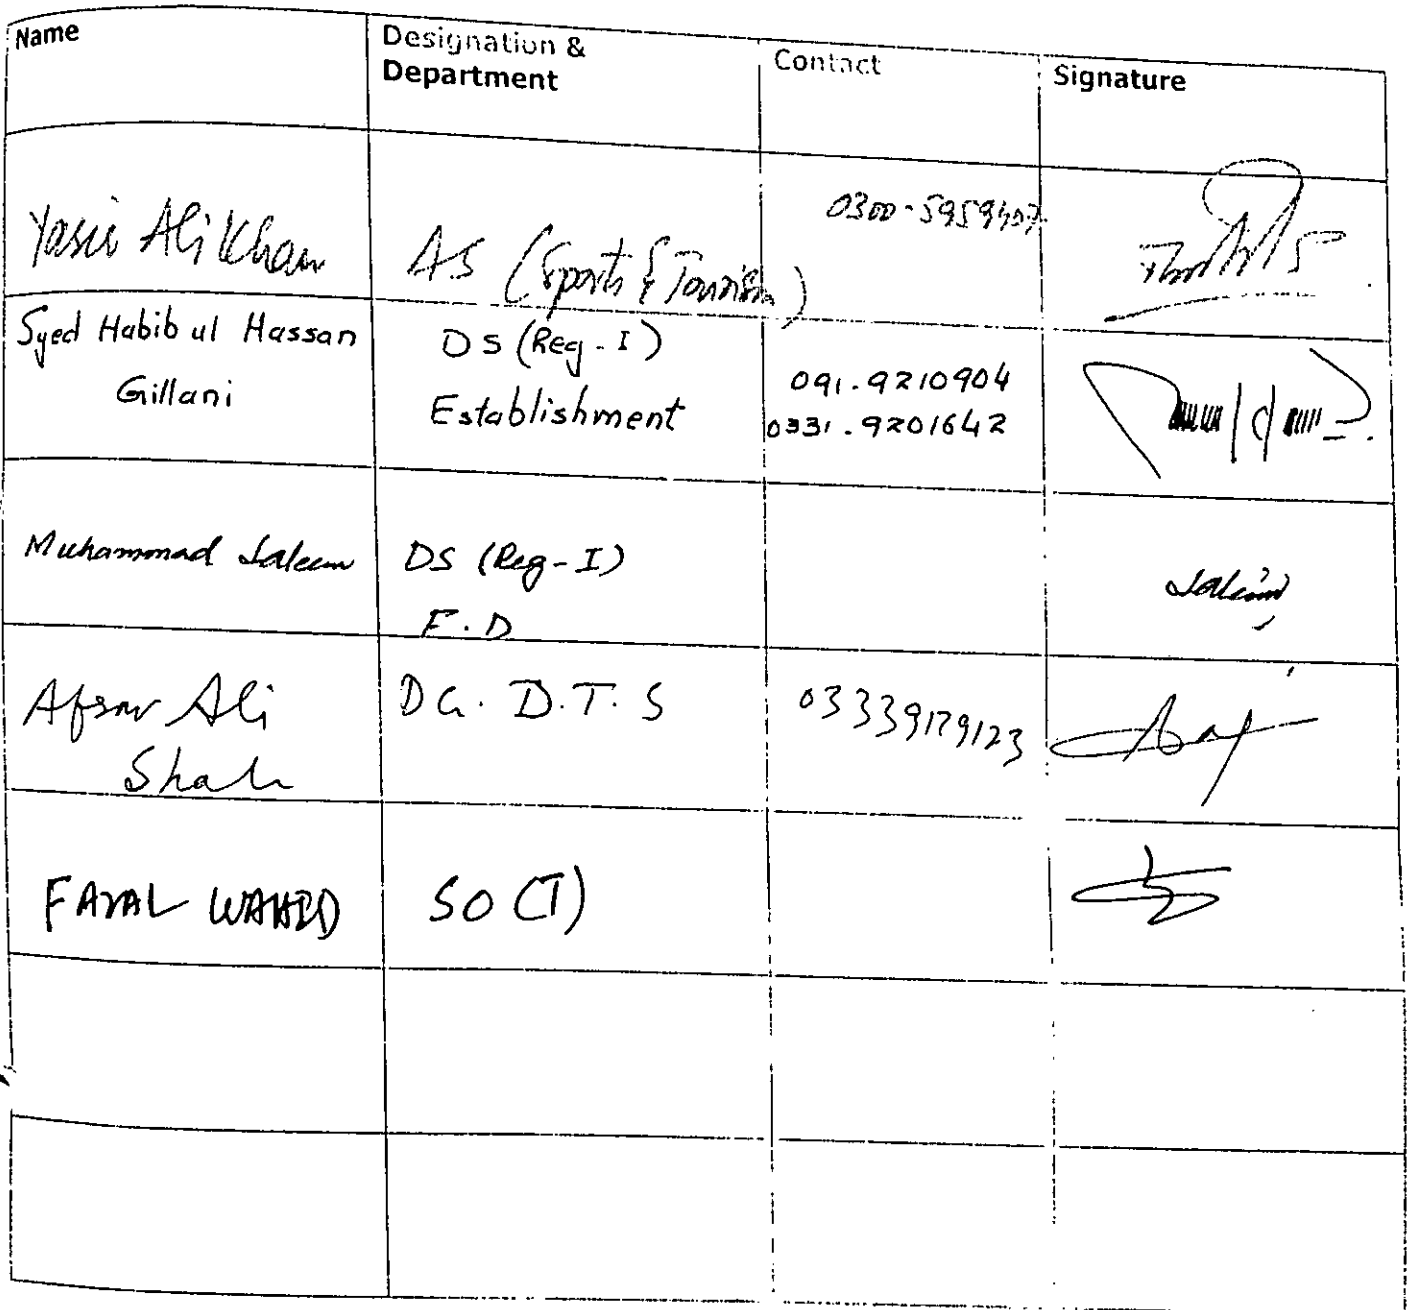 Name
Designation &
Department
Contact
Signature
Yasir Ali Khan
AS (Sports & Tourism)
Syed Habib ul Hassan
Gillani
DS (Reg - I)
Establishment
091.9210904
0331.9201642
Muhammad Saleem
DS (Reg-I)
F.D
Saleem
Afsar Ali
Shah
DG. D.T.S
03339179123
FAZAL WAHID
SO (T)